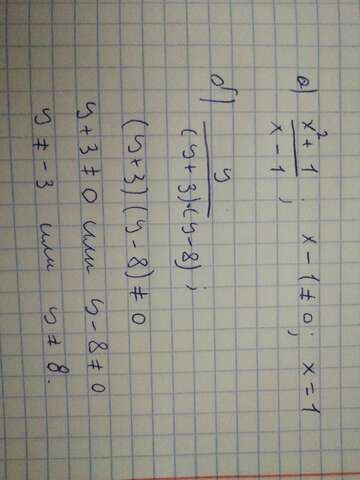 а) x² + 1 / x - 1 ; x - 1 ≠ 0; x = 1
б) y / (y+3)·(y-8) ;
(y+3)(y-8) ≠ 0
y + 3 ≠ 0 или y - 8 ≠ 0
y ≠ -3 или y ≠ 8.